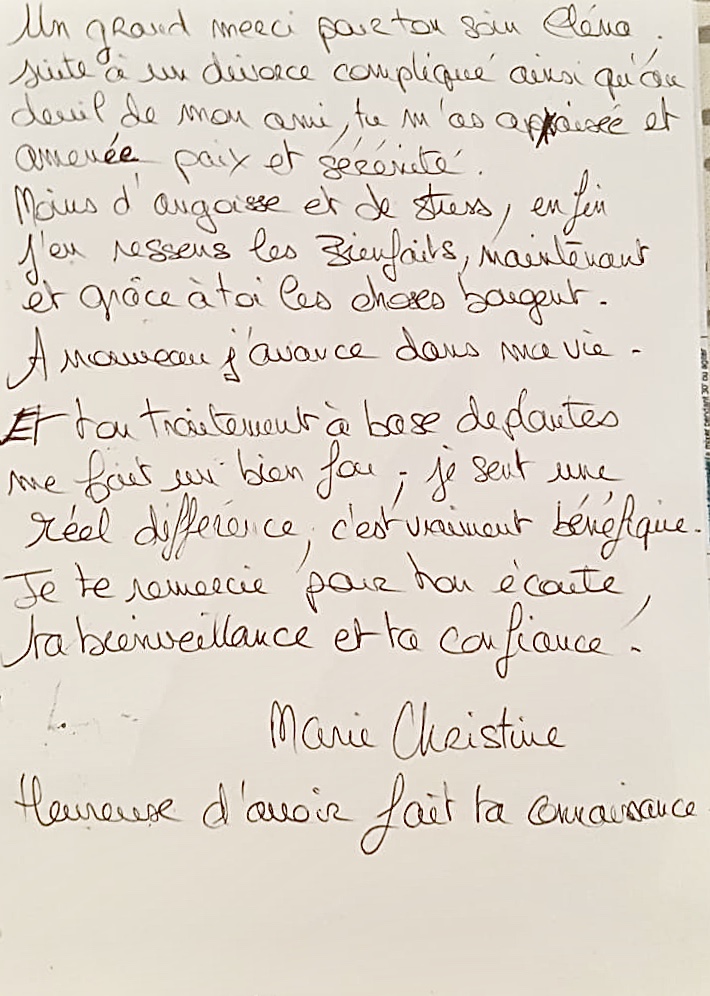 Un grand merci pour ton soin Eléna.
suite à un divorce compliqué ainsi qu'au
deuil de mon ami, tu m'as appaisée et
amenée paix et sérénité.
Moins d'angoisse et de stress, en fin
j'en ressens les Bienfaits, maintenant
et grâce à toi les choses bougent.
A nouveau j'avance dans ma vie.
Et ton traitement à base de plantes
me fait un bien fou, je sent une
réel différence, c'est vraiment bénéfique.
Je te remercie pour ton écoute,
ta bienveillance et ta confiance.
Marie Christine
Heureuse d'avoir fait ta connaissance